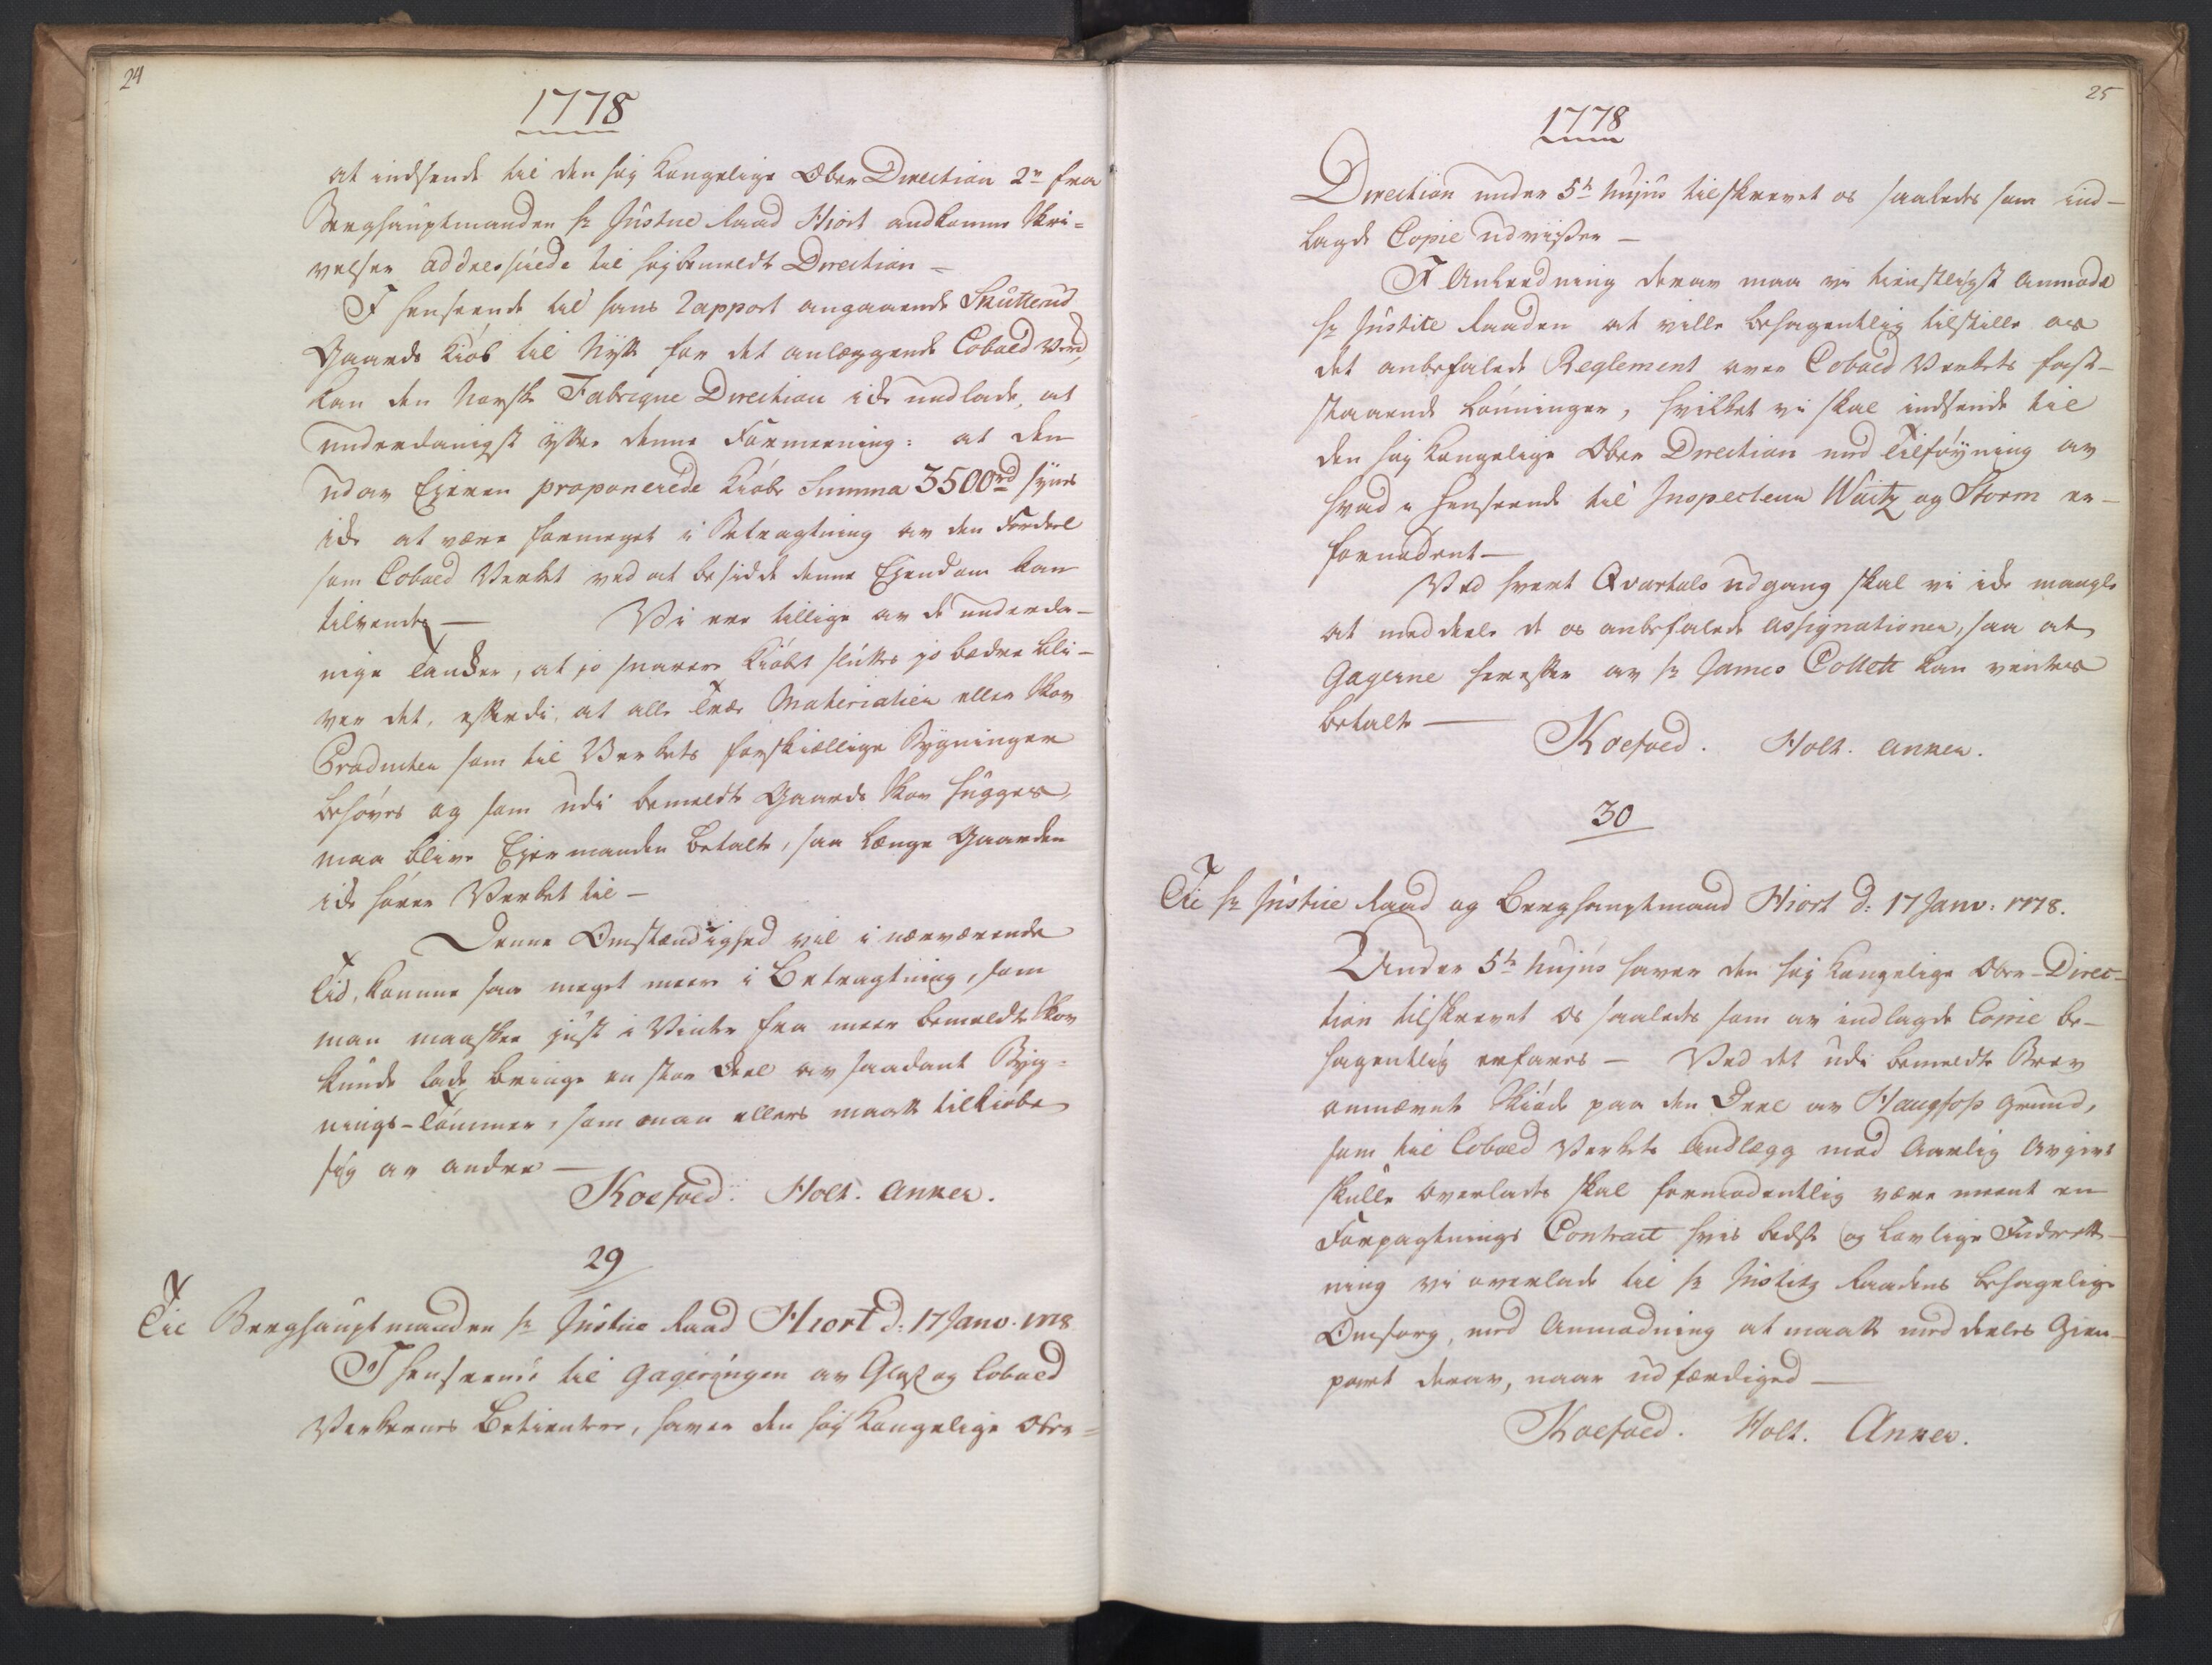 24
1778
at indsende til den høy Kongelige Ober Direction 2de fra
Berghauptmanden Hr Justice Raad Hiort andkomne Skri=
velser addresserede til høybemeldte Direction =
I henseende til hans Rapport angaaende Skutterud
Gaards Kiöb til Nytte for det anlæggende Cobold Verk,
kan den Norske Fabrique Direction icke undlade, at
underdanigst yttre denne Formeening: at den
udav Ejeren proponerede Kiöbe Summa 3500 rd synes
icke at være formeget i Betragtning av den Fordeel
som Cobold Verket ved at besidde denne Ejendom kan
tilvendes — Vi ere tillige av de underda-
nige Tancker, at jo snarere Kiöbet sluttes jo bedre bli-
ver det, efterdi, at alle Træe Materialier eller Skov
Producter som til Verkets forskiællige Bygninger
behöves og som udi bemeldte Gaards Skov hugges,
maa blive Ejermanden betalte, saa længe Gaarden
icke hörer Verket til —
Denne Omstændighed vil i nærværende
Tid, komme saa meget meere i Betragtning, som
man maaskee just i Vinter fra meer bemeldte Skov
kunde lade bringe en stor Deel av saadant Byg=
nings-Tömmer, som man ellers maatte tilkiöbe
sig av andre —
Koefoed. Holt. Anker.
29
Til Berghauptmanden Hr Justice Raad Hiort d: 17 Janv. 1778.
I henseende til Gageringen av Glas og Cobold
Verkernes Betientere, haver den høy Kongelige Ober=
25
1778
Direction under 5te hujus tilskrevet os saaledes som ind-
lagde Copie udviser —
I Anledning derav maa vi tienstligst anmode
Hr Justice Raaden at ville behagentlig tilstille os
det anbefalede Reglement over Cobold Verkets fast-
staaende Lönninger, hvilket vi skal indsende til
den høy Kongelige Ober Direction med Tilføyning av
hvad i henseende til Inspecteur Waitz og Storm er-
fornödent —
Ved hvert Qvartals udgang skal vi icke mangle
at meddeele de os anbefalede assignationer, saa at
Gagerne herefter av Hr James Collett kan ventes
betalte —
Koefoed. Holt. Anker.
30
Til Hr Justice Raad og Berghauptmand Hiort d: 17 Janv: 1778.
Under 5te hujus haver den høy Kongelige Ober-Direc-
tion tilskrevet os saaledes som av indlagde Copie be-
hagentlig erfares — Ved det udi bemeldte Brev
ommævnte Skiöde paa den Deel av Haugfoss Grund,
som til Cobold Verkets Andlægg mod Aarlig Avgivt
skulle overlades skal formodentlig være meent en
Forpagtnings Contract hvis bedste og lovlige Indret-
ning vi overlade til Hr Justitz Raadens behagelige
Omsorg, med Anmodning at maatte meddeeles Gien-
part derav, naar udfærdiged —
Koefoed. Holt. Anker.